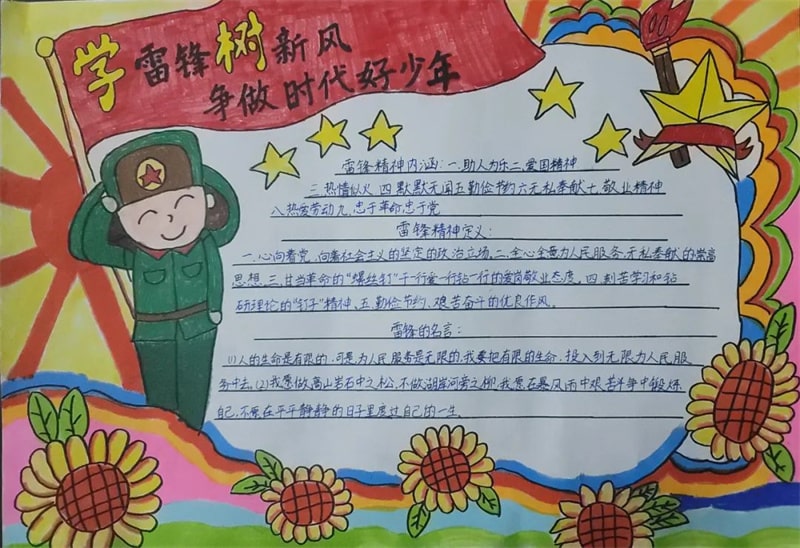 学雷锋树新风
争做时代好少年
雷锋精神内涵:一.助人为乐二.爱国精神
三.热情似火 四.默默无闻五.勤俭节约六.无私奉献七.敬业精神
八.热爱劳动九.忠于革命,忠于党
雷锋精神定义:
一.心向着党,向着社会主义的坚定的政治立场,二.全心全意为人民服务,无私奉献的崇高
思想.三.甘当革命的“螺丝钉”干一行爱一行钻一行的爱岗敬业态度。四.刺苦学习和钻
研理论的“钉子”精神.五.勤俭节约、艰苦奋斗的优良作风。
雷锋的名言:
(1)人的生命是有限的,可是,为人民服务是无限的,我要把有限的生命,投入到无限为人民服
务中去,(2)我愿做高山岩石中之松,不做湖岸河旁之柳,我愿在暴风雨中艰苦斗争中锻炼
自己,不愿在平平静静的日子里度过自己的一生.